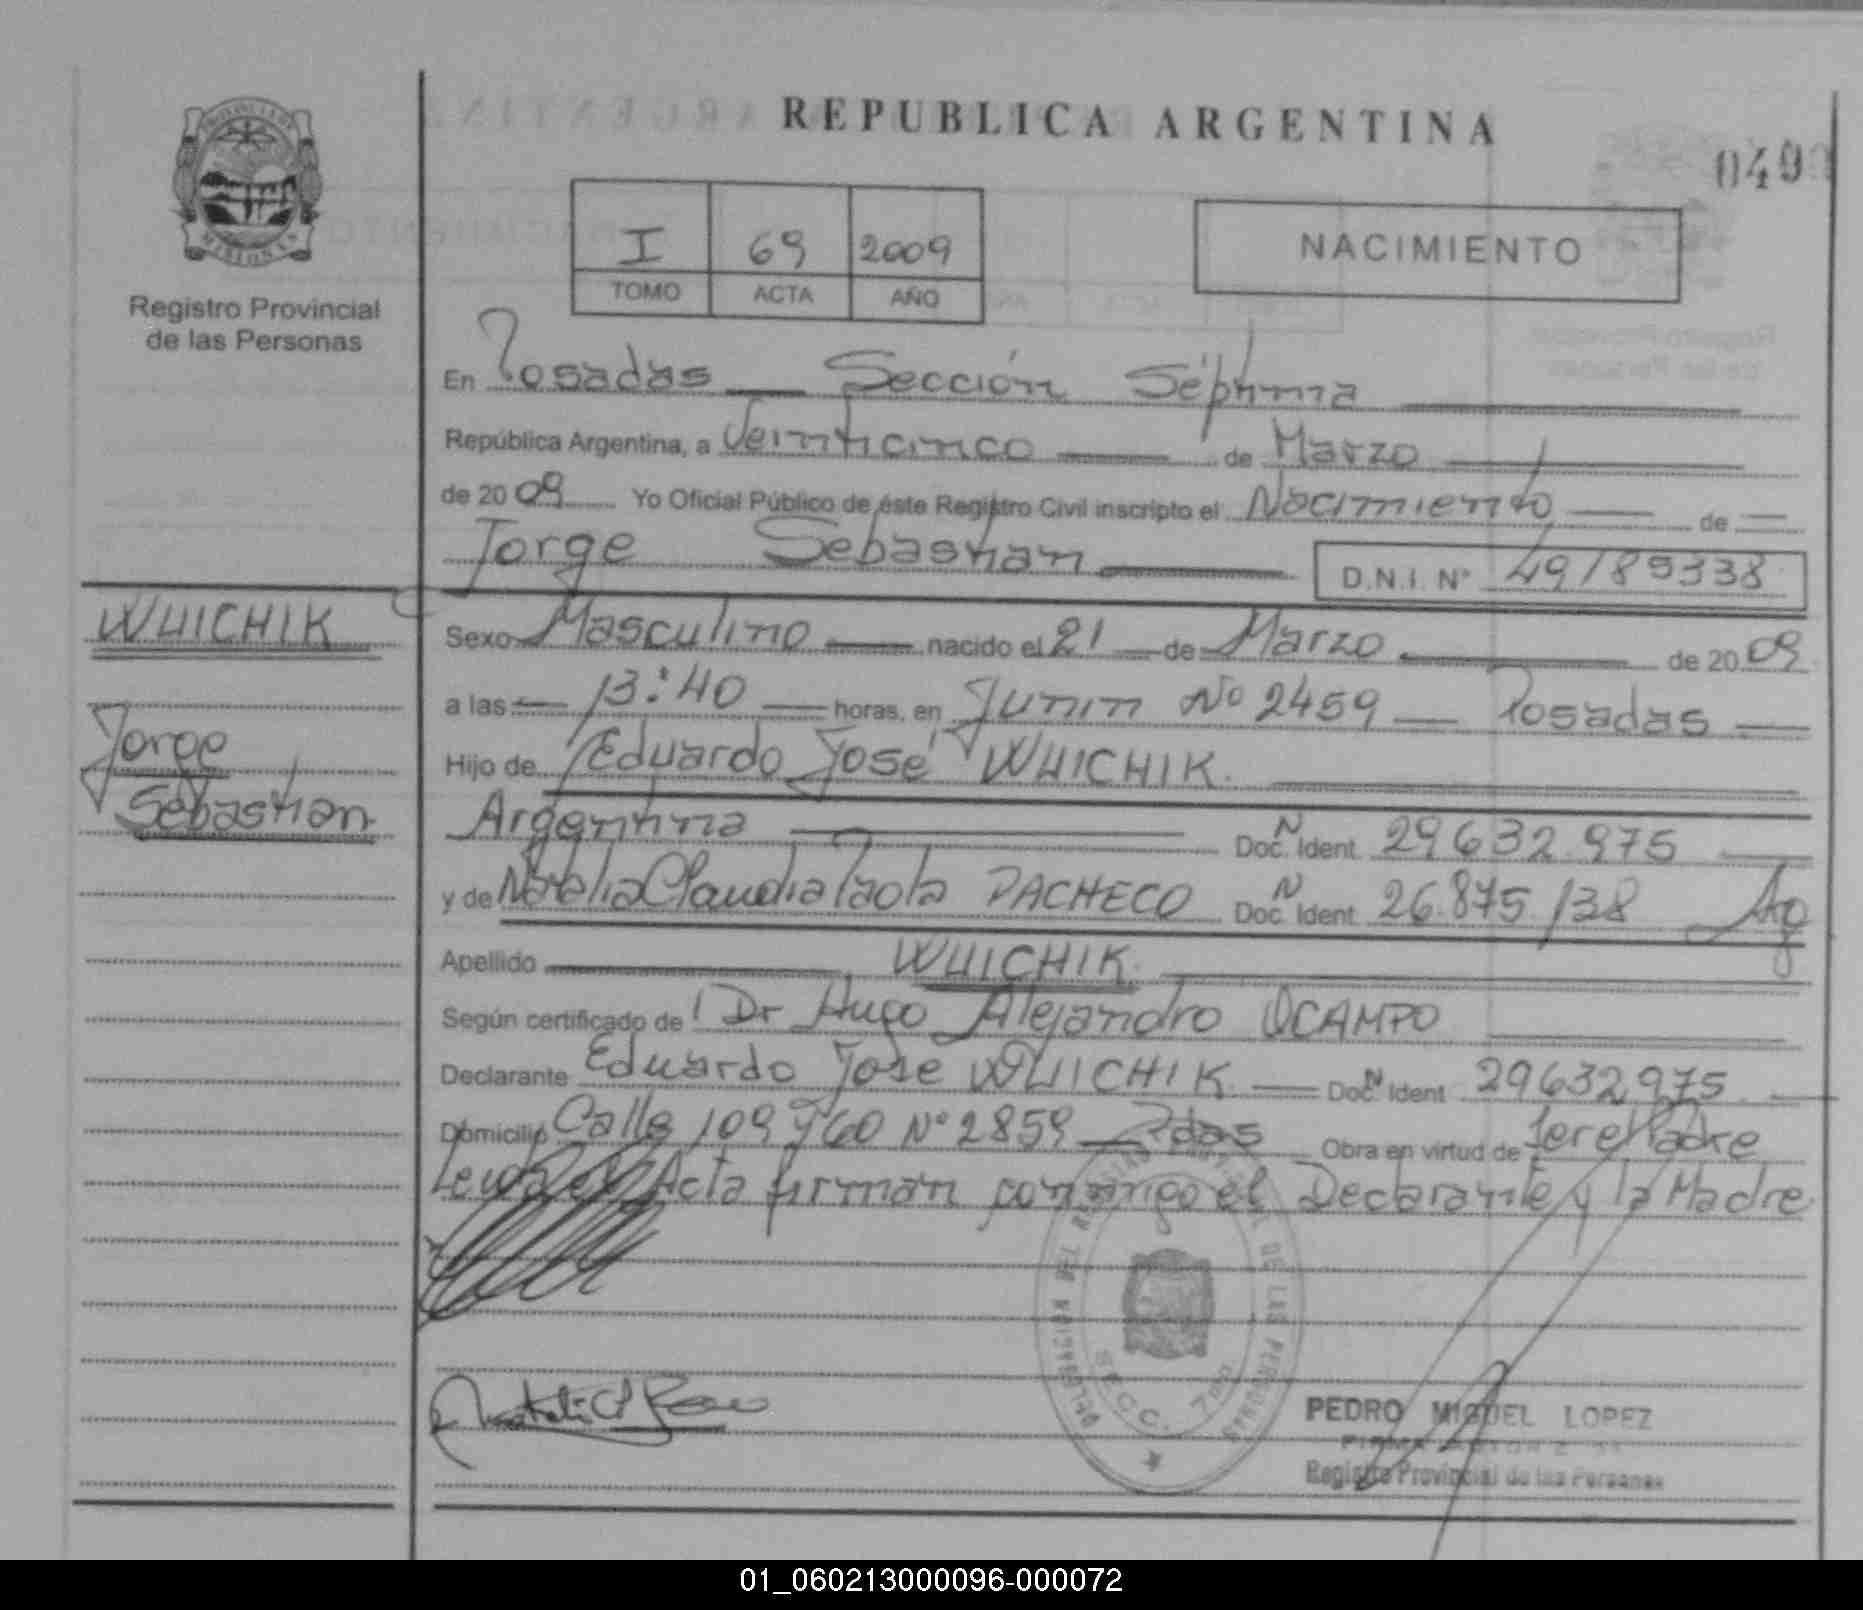 REPUBLICA ARGENTINA
PROVINCIA DE
MISIONES
Registro Provincial
de las Personas
I 69 2009
TOMO ACTA AÑO
NACIMIENTO
049
En Posadas — Sección Séptima
República Argentina, a Veinticinco — de Marzo
de 2009 Yo Oficial Público de éste Registro Civil inscripto el Nacimiento — de —
Jorge Sebastian — D.N.I. Nº 49189338
WUICHIK
Jorge
Sebastian
Sexo Masculino — nacido el 21 — de Marzo — de 2009
a las — 13:40 — horas, en Junin Nº 2459 — Posadas —
Hijo de Eduardo José WUICHIK.
Argentina — Doc. Ident N 29632.975 —
y de Natalia Claudia Paola PACHECO Doc. Ident N 26.875.138 Arg
Apellido — WUICHIK.
Según certificado de Dr Hugo Alejandro OCAMPO
Declarante Eduardo José WUICHIK — Doc. Ident N 29632975 —
Domicilio Calle 109 y 60 Nº 2859 — Pdas Obra en virtud de ser el Padre
Leida el Acta firman conmigo el Declarante y la Madre
REGISTRO PROVINCIAL DE LAS PERSONAS
SECC. 7ma
PEDRO MIGUEL LOPEZ
Registro Provincial de las Personas
01_060213000096-000072